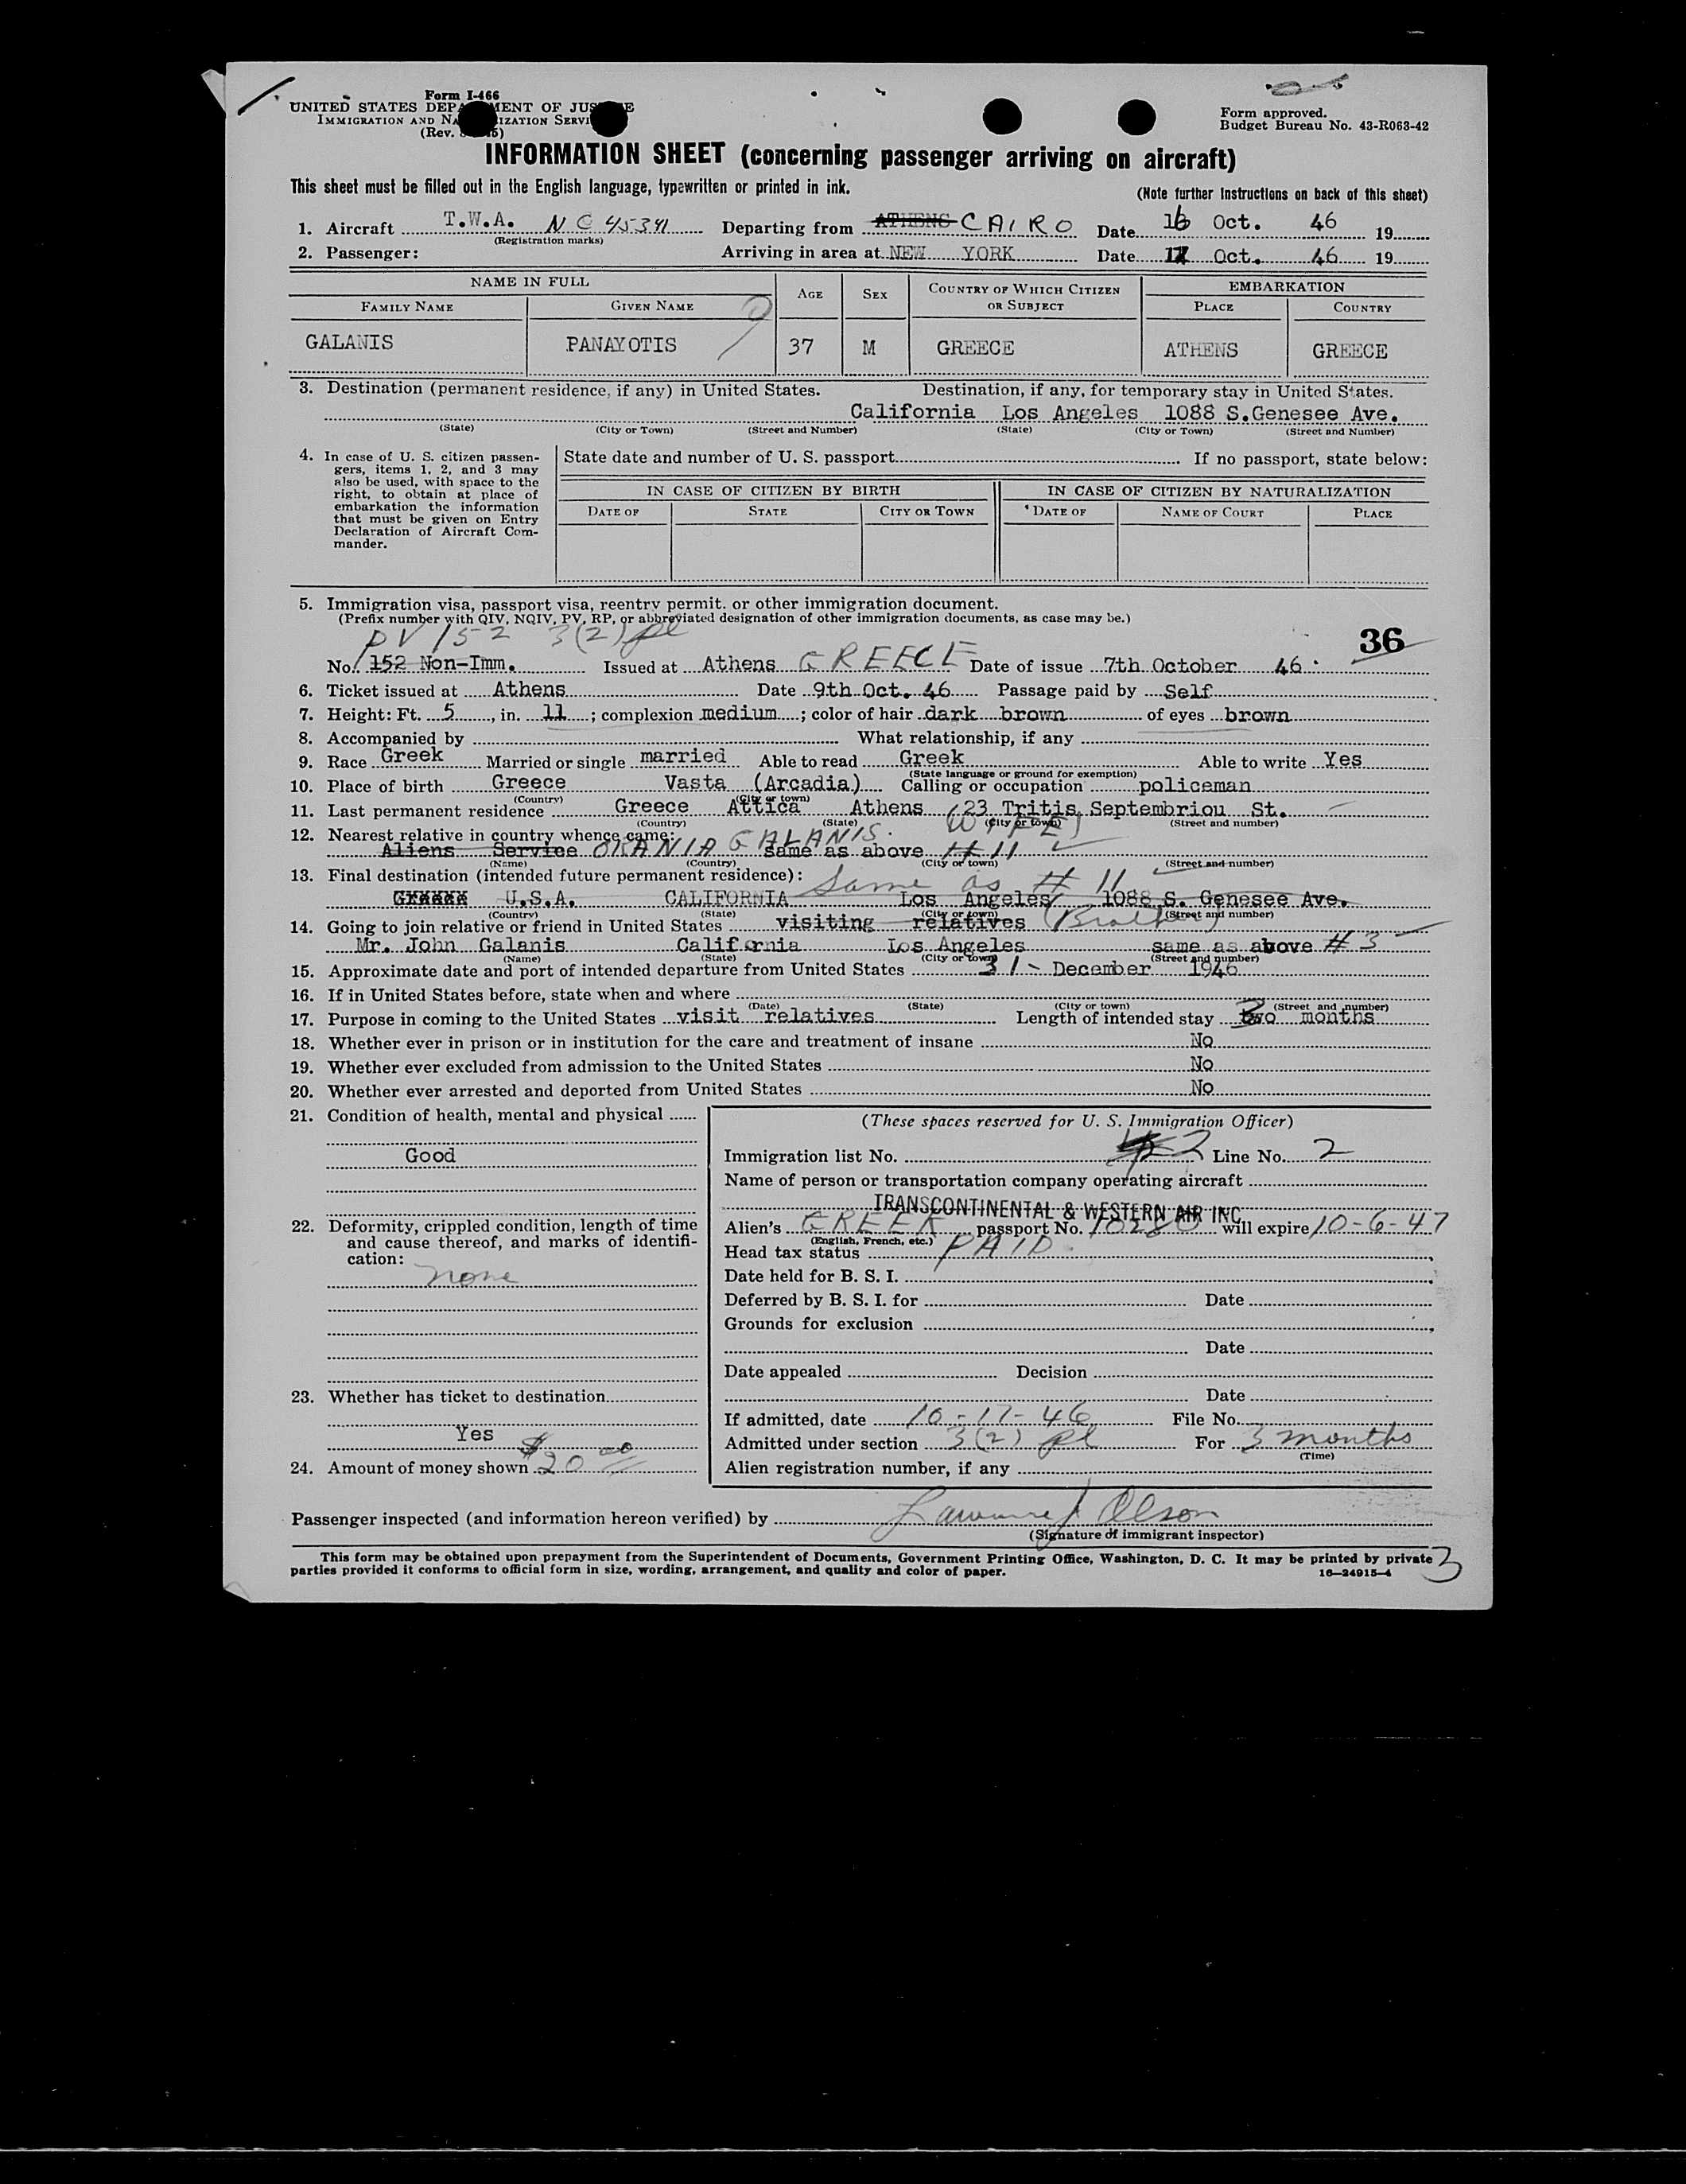 Form I-466
UNITED STATES DEPARTMENT OF JUSTICE
IMMIGRATION AND NATURALIZATION SERVICE
(Rev.
Form approved.
Budget Bureau No. 43-R063-42
INFORMATION SHEET (concerning passenger arriving on aircraft)
This sheet must be filled out in the English language, typewritten or printed in ink.
(Note further instructions on back of this sheet)
1. Aircraft T.W.A. NC 45341 Departing from ATHENS CAIRO Date 16 Oct. 46 19
(Registration marks)
2. Passenger: Arriving in area at NEW YORK Date 17 Oct. 46 19
NAME IN FULL AGE SEX COUNTRY OF WHICH CITIZEN OR SUBJECT EMBARKATION
FAMILY NAME GIVEN NAME PLACE COUNTRY
GALANIS PANAYOTIS 37 M GREECE ATHENS GREECE
3. Destination (permanent residence, if any) in United States. Destination, if any, for temporary stay in United States.
California Los Angeles 1088 S.Genesee Ave.
(State) (City or Town) (Street and Number) (State) (City or Town) (Street and Number)
4. In case of U. S. citizen passengers, items 1, 2, and 3 may also be used, with space to the right, to obtain at place of embarkation the information that must be given on Entry Declaration of Aircraft Commander.
State date and number of U. S. passport If no passport, state below:
IN CASE OF CITIZEN BY BIRTH IN CASE OF CITIZEN BY NATURALIZATION
DATE OF STATE CITY OR TOWN DATE OF NAME OF COURT PLACE
5. Immigration visa, passport visa, reentry permit, or other immigration document.
(Prefix number with QIV, NQIV, PV, RP, or abbreviated designation of other immigration documents, as case may be.)
PV 152 3(2) pl
36
No. 152 Non-Imm. Issued at Athens GREECE Date of issue 7th October 46.
6. Ticket issued at Athens Date 9th Oct. 46 Passage paid by Self
7. Height: Ft. 5, in. 11; complexion medium; color of hair dark brown of eyes brown
8. Accompanied by What relationship, if any
9. Race Greek Married or single married Able to read Greek Able to write Yes
(State language or ground for exemption)
10. Place of birth Greece Vasta (Arcadia) Calling or occupation policeman
(Country) (City or town)
11. Last permanent residence Greece Attica Athens 23 Tritis Septembriou St.
(Country) (State) (City or town) (Street and number)
12. Nearest relative in country whence came: (WIFE)
Aliens Service GALANIS same as above # 11
(Name) (Country) (City or town) (Street and number)
13. Final destination (intended future permanent residence): Same as # 11
U.S.A. CALIFORNIA Los Angeles 1088 S. Genesee Ave.
(Country) (State) (City or town) (Street and number)
14. Going to join relative or friend in United States visiting relatives (Brother)
Mr. John Galanis California Los Angeles same as above # 3
(Name) (State) (City or town) (Street and number)
15. Approximate date and port of intended departure from United States 31 - December 1946
16. If in United States before, state when and where
(Date) (State) (City or town) (Street and number)
17. Purpose in coming to the United States visit relatives Length of intended stay 3 months
18. Whether ever in prison or in institution for the care and treatment of insane No
19. Whether ever excluded from admission to the United States No
20. Whether ever arrested and deported from United States No
21. Condition of health, mental and physical
Good
22. Deformity, crippled condition, length of time and cause thereof, and marks of identification:
none
23. Whether has ticket to destination
Yes
24. Amount of money shown $20 00
(These spaces reserved for U. S. Immigration Officer)
Immigration list No. 2 Line No. 2
Name of person or transportation company operating aircraft
TRANSCONTINENTAL & WESTERN AIR INC
Alien's GREEK passport No. will expire 10-6-47
(English, French, etc.)
Head tax status PAID
Date held for B. S. I.
Deferred by B. S. I. for Date
Grounds for exclusion
Date
Date appealed Decision
Date
If admitted, date 10-17-46 File No.
Admitted under section 3(2) pl For 3 months
(Time)
Alien registration number, if any
Passenger inspected (and information hereon verified) by Lawrence J Olson
(Signature of immigrant inspector)
This form may be obtained upon prepayment from the Superintendent of Documents, Government Printing Office, Washington, D. C. It may be printed by private
parties provided it conforms to official form in size, wording, arrangement, and quality and color of paper.
16—24915-4
3